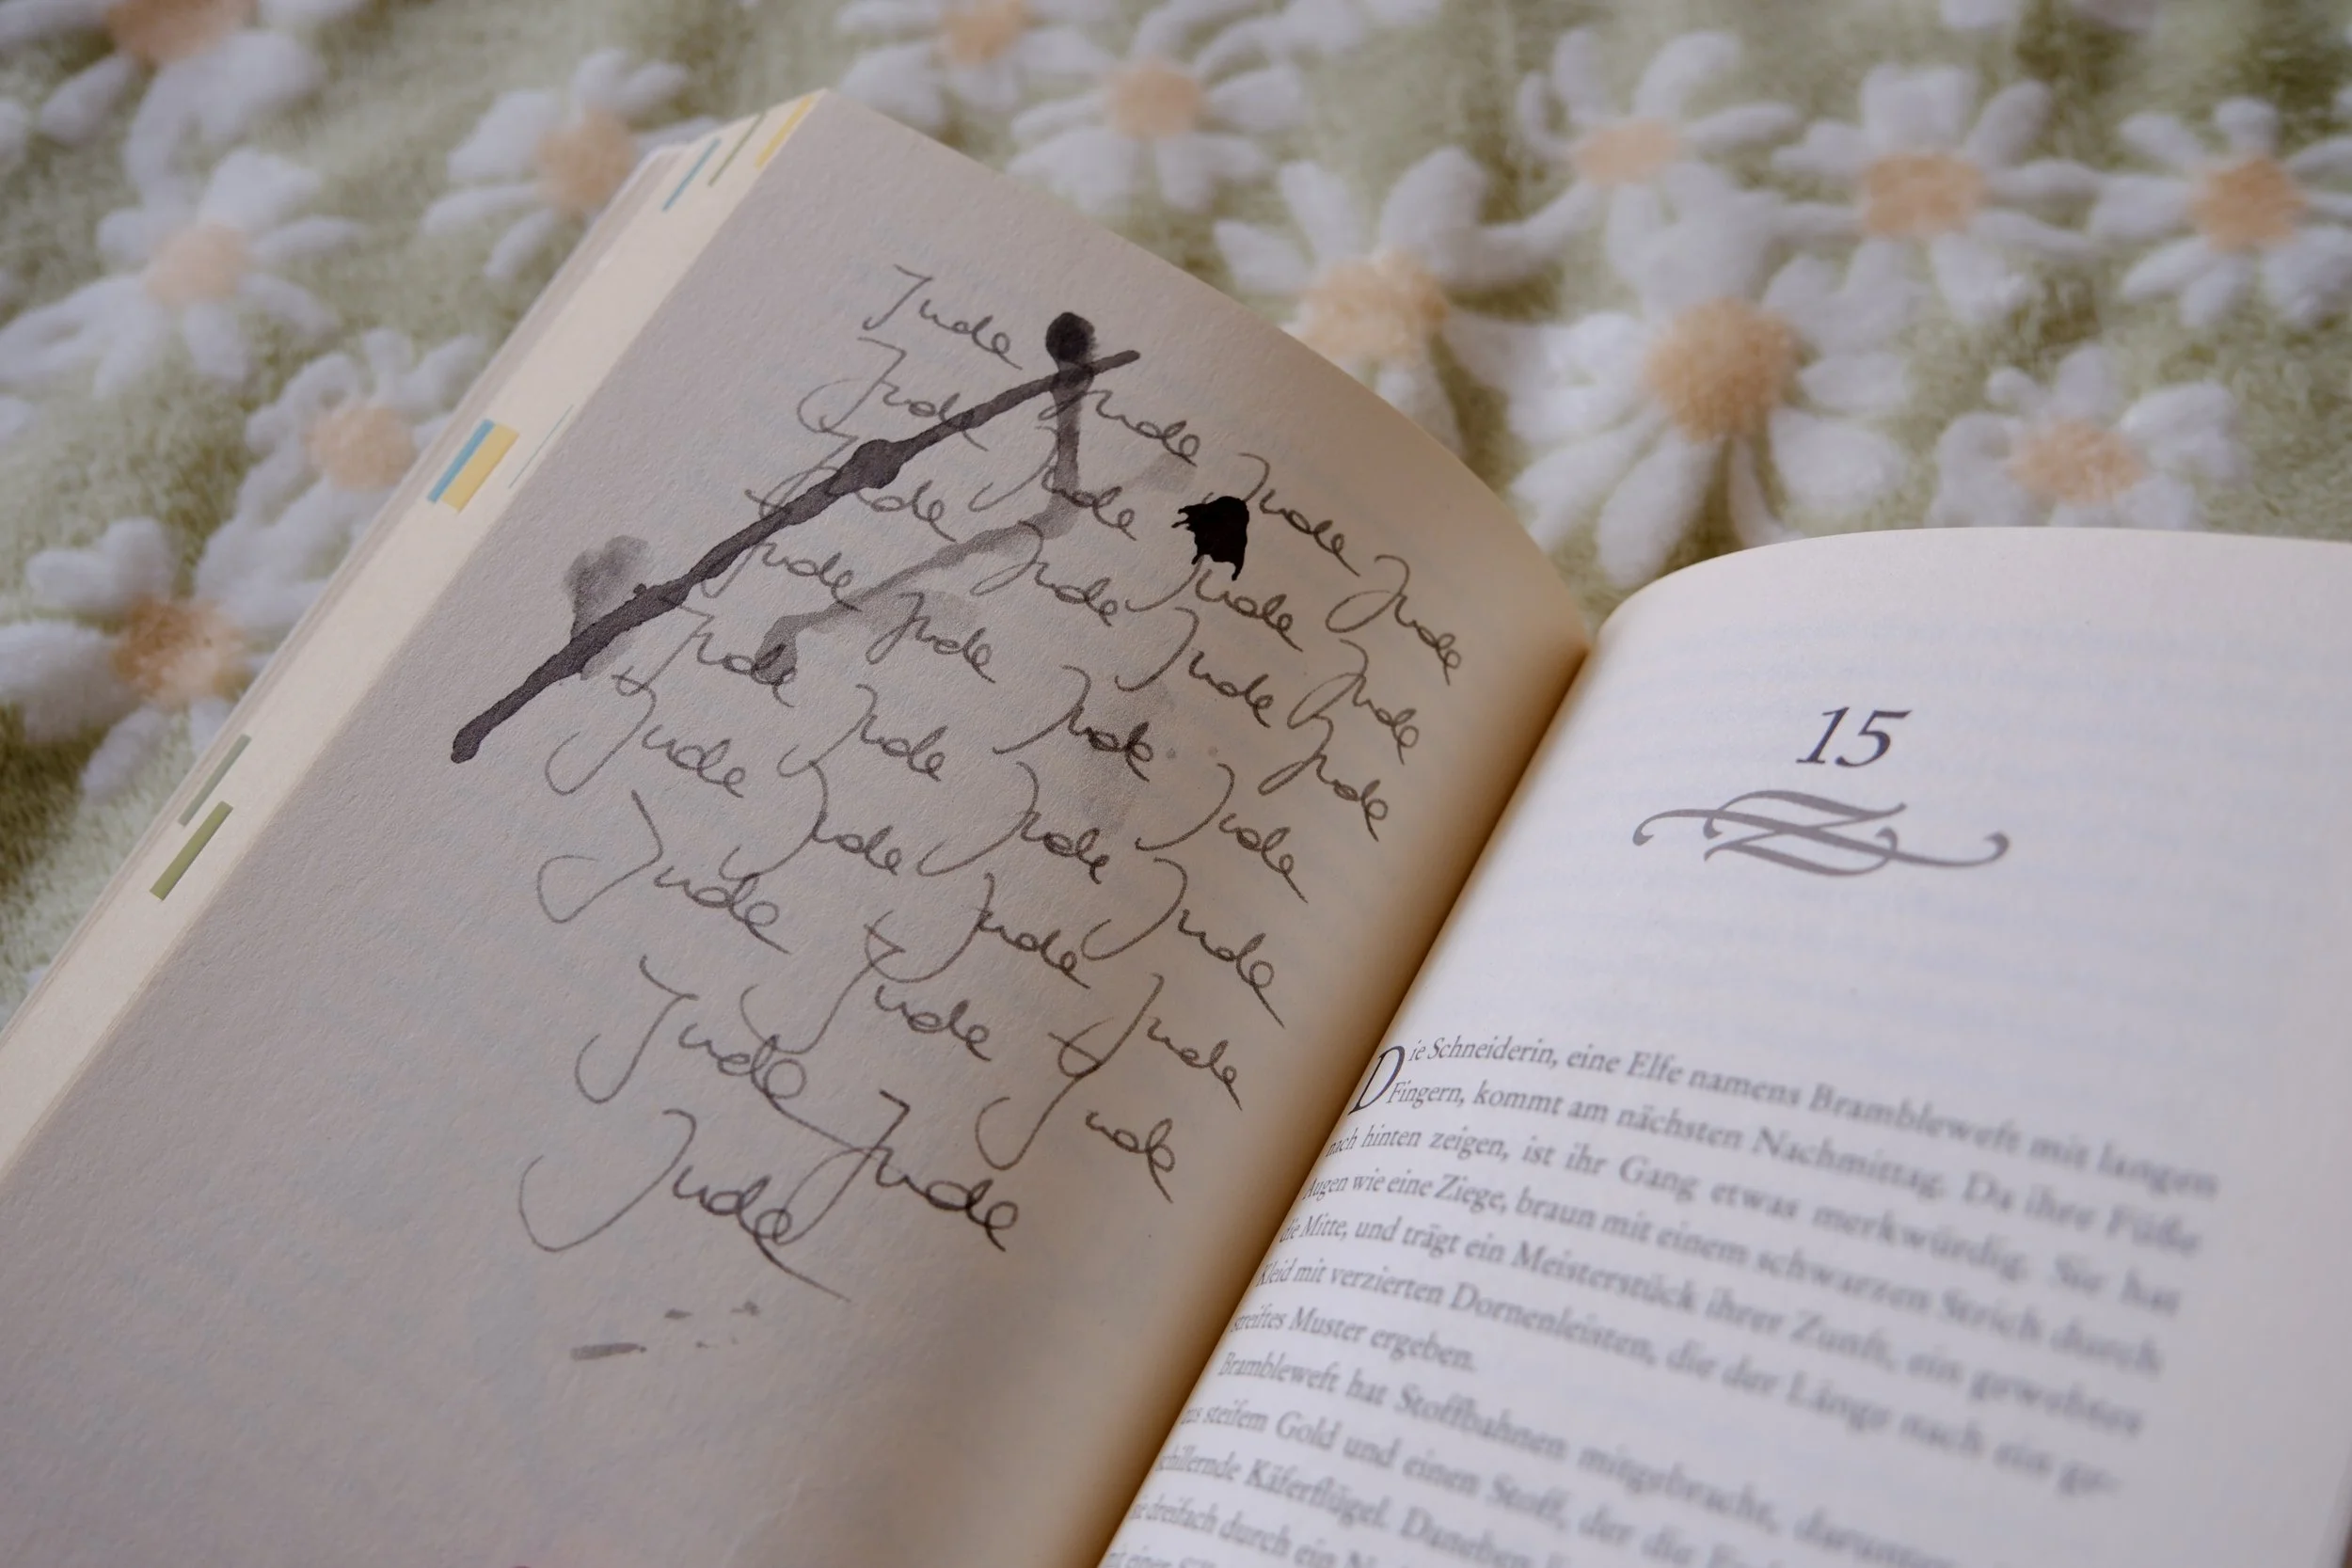 Jude Jude Jude Jude
Jude Jude Jude Jude
Jude Jude Jude Jude
Jude Jude Jude Jude
Jude Jude Jude Jude
Jude Jude Jude Jude
Jude Jude Jude
Jude Jude
Jude
15
Die Schneiderin, eine Elfe namens Brambleweft mit langen
Fingern, kommt am nächsten Nachmittag. Da ihre Füße
nach hinten zeigen, ist ihr Gang etwas merkwürdig. Sie hat
Augen wie eine Ziege, braun mit einem schwarzen Strich durch
die Mitte, und trägt ein Meisterstück ihrer Zunft, ein gewebtes
Kleid mit verzierten Dornenleisten, die der Länge nach ein ge-
streiftes Muster ergeben.
Brambleweft hat Stoffbahnen mitgebracht, darunter
aus steifem Gold und einen Stoff, der die
schillernde Käferflügel. Daneben
dreifach durch ein
einer